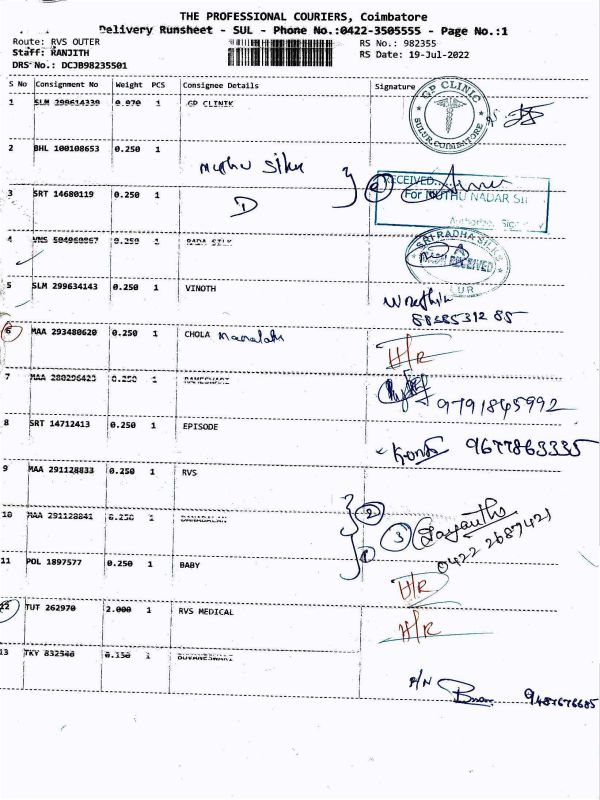 THE PROFESSIONAL COURIERS, Coimbatore
Delivery Runsheet - SUL - Phone No.:0422-3505555 - Page No.:1
Route: RVS OUTER
RS No.: 982355
Staff: RANJITH
RS Date: 19-Jul-2022
DRS No.: DCJB98235501
S No Consignment No Weight PCS Consignee Details Signature
1 SLM 299614339 0.970 1 GP CLINIK
GP CLINIC
SULUR, COIMBATORE
2 BHL 100108653 0.250 1
Muthu Silks
D
3 SRT 14680119 0.250 1
RECEIVED
For MUTHU NADAR SI
Authorized Sign
4 VNS 504960867 0.250 1 RADA SILK
SRI RADHA SILKS
RECEIVED
5 SLM 299634143 0.250 1 VINOTH
6 MAA 293480620 0.250 1 CHOLA
H/R
7 MAA 280296423 0.250 1 RAMESWARI
9791845992
8 SRT 14712413 0.250 1 EPISODE
9677863335
9 MAA 291128833 0.250 1 RVS
2
10 MAA 291128841 0.250 1
3 Jayanthi
0422 2687421
11 POL 1897577 0.250 1 BABY
H/R
12 TUT 262970 2.000 1 RVS MEDICAL
H/R
13 TKY 832540 0.150 1 BUVANESWARI
9487676685